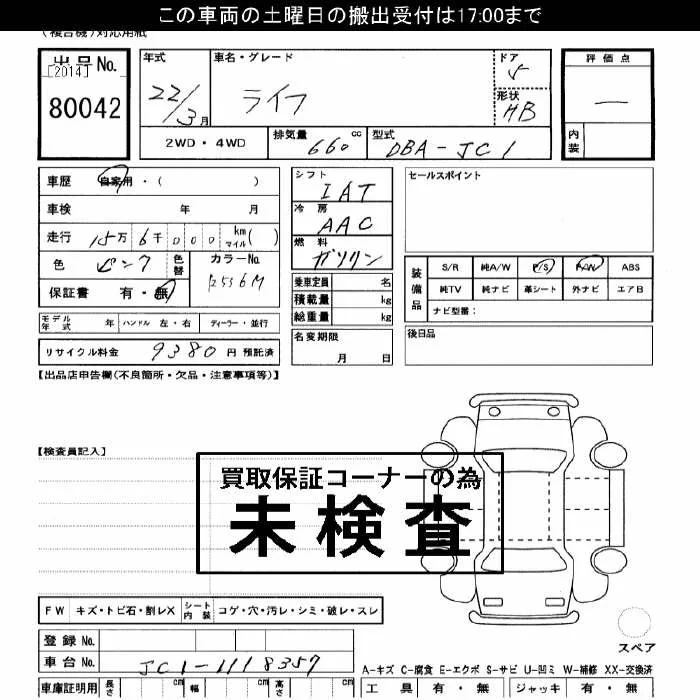 この車両の土曜日の搬出受付は17:00まで
(複合機)対応用紙
出品No.
[2014]
80042
年式
22/3月
車名・グレード
ライフ
ドア
5
形状
HB
評価点
—
内装
2WD・4WD
排気量 660 cc
型式 DBA-JC1
車歴 自家用・( )
車検 年 月
走行 15万6千000 km マイル( )
色 ピンク 色替
カラーNo.
R556M
保証書 有・無
シフト
IAT
冷房
AAC
燃料
ガソリン
乗車定員 名
積載量 kg
総重量 kg
セールスポイント
装備品
S/R 純A/W P/S P/W ABS
純TV 純ナビ 革シート 外ナビ エアB
ナビ型番:
モデル年式 年 ハンドル 左・右 ディーラー・並行
リサイクル料金 9380 円 預託済
名変期限
月 日
後日品
【出品店申告欄(不良箇所・欠品・注意事項等)】
【検査員記入】
買取保証コーナーの為
未検査
FW キズ・トビ石・割レX シート内装 コゲ・穴・汚レ・シミ・破レ・スレ
スペア
登録No.
車台No. JC1-1118357
A-キズ C-腐食 E-エクボ S-サビ U-凹ミ W-補修 XX-交換済
車庫証明用 長さ cm 幅 cm 高さ cm
工具 有・無 ジャッキ 有・無